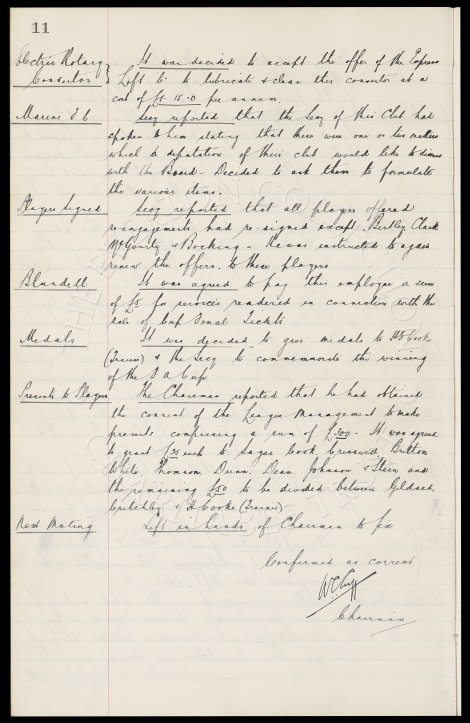 11
Electric Rotary It was decided to accept the offer of the Express
Convertor Lift Co. to lubricate & clean this convertor at a
cost of £7-15-0 per annum.
Marine F C Secy reported that the Secy of this Club had
spoken to him stating that there were one or two matters
which a deputation of their club would like to discuss
with the Board - Decided to ask them to formulate
the various items.
Players Signed Secy reported that all players offered
re-engagements had re-signed except. Bentley Clark
McGourty & Bocking - He was instructed to again
renew the offers to these players
Blundell It was agreed to pay this employee a sum
of £5 for services rendered in connection with the
sale of Cup Final Tickets
Medals It was decided to give medals to H E Cooke
(Trainer) & the Secy to commemorate the winning
of the F A Cup
Presents to Players The Chairman reported that he had obtained
the consent of the League Management to make
presents comprising a sum of £300 - It was agreed
to grant £25 each to Sagar Cook Cresswell Britton
White Thomson Dunn. Dean Johnson & Stein and
the remaining £50 to be divided between Geldard
Critchley & H Cooke (Trainer)
Next Meeting Left in hands of Chairman to fix
Confirmed as correct
W C Cuff
Chairman